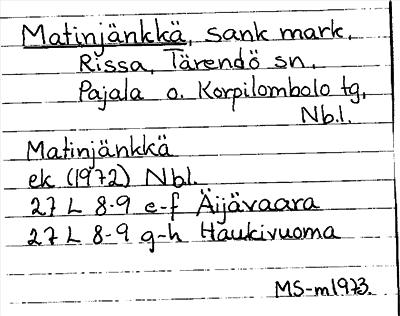 Matinjänkkä, sank mark,
Rissa, Tärendö sn,
Pajala o. Korpilombolo tg,
Nb.l.
Matinjänkkä
ek (1972) Nbl.
27 L 8-9 e-f Äijävaara
27 L 8-9 g-h Haukivuoma
MS-m1973.